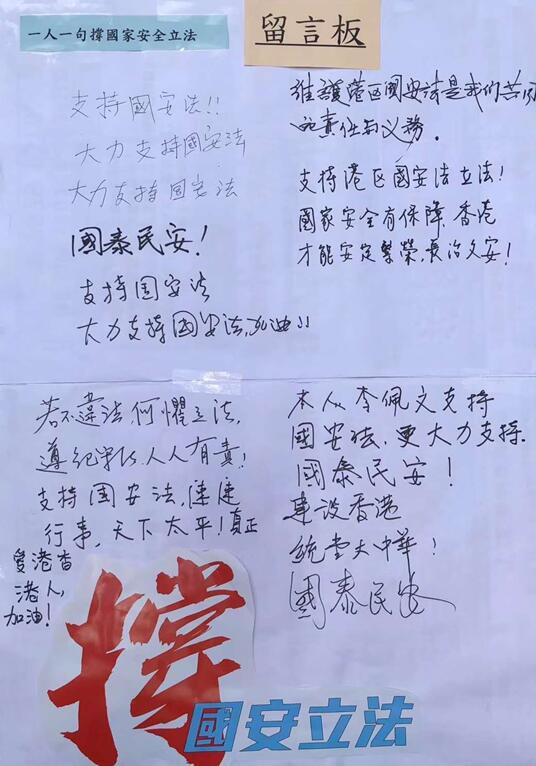 一人一句撐國家安全立法
留言板
支持國安法!!
大力支持國安法
大力支持国安法
國泰民安!
支持国安法
大力支持國安法,加油!!
維護港区國安法是我們
的責任与义務。
支持港区國安法立法!
國家安全有保障,香港
才能安定繁榮,長治久安!
若不違法,何懼立法,
遵紀守法,人人有責!
支持国安法,
行事,天下太平!真正
愛港杳
港人,
加油!
本人李佩文支持
國安法,更大力支持.
國泰民安!
建设香港
大中華!
國泰民安
撐
國安立法